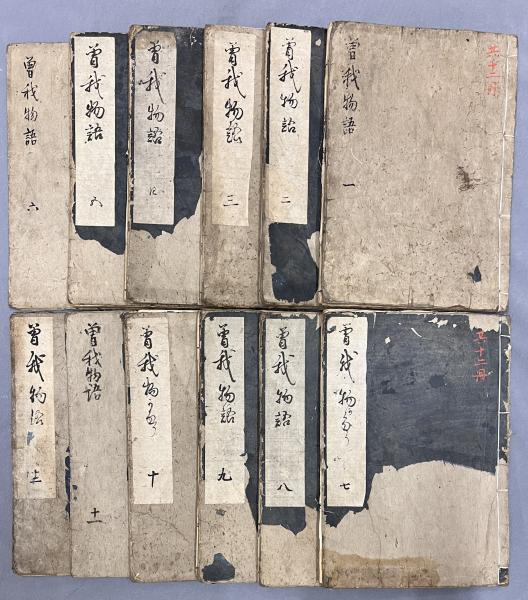 共十二冊
曽我物語 一
曽我物語 二
曽我物語 三
曽我物語 四
曽我物語 五
曽我物語 六
共十二冊
曽我物かたり 七
曽我物語 八
曽我物語 九
曽我物かたり 十
曽我物語 十一
曽我物語